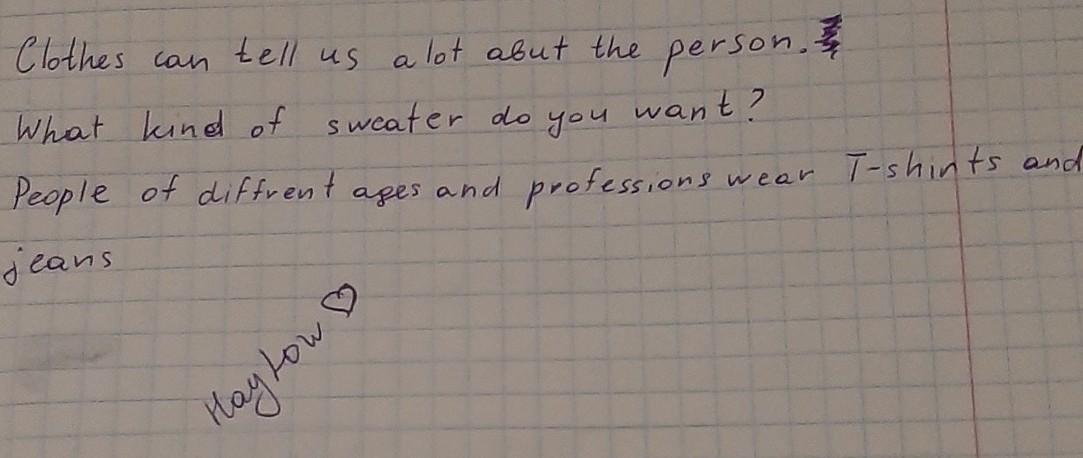 Clothes can tell us a lot about the person.
What kind of sweater do you want?
People of diffrent ages and professions wear T-shirts and
jeans